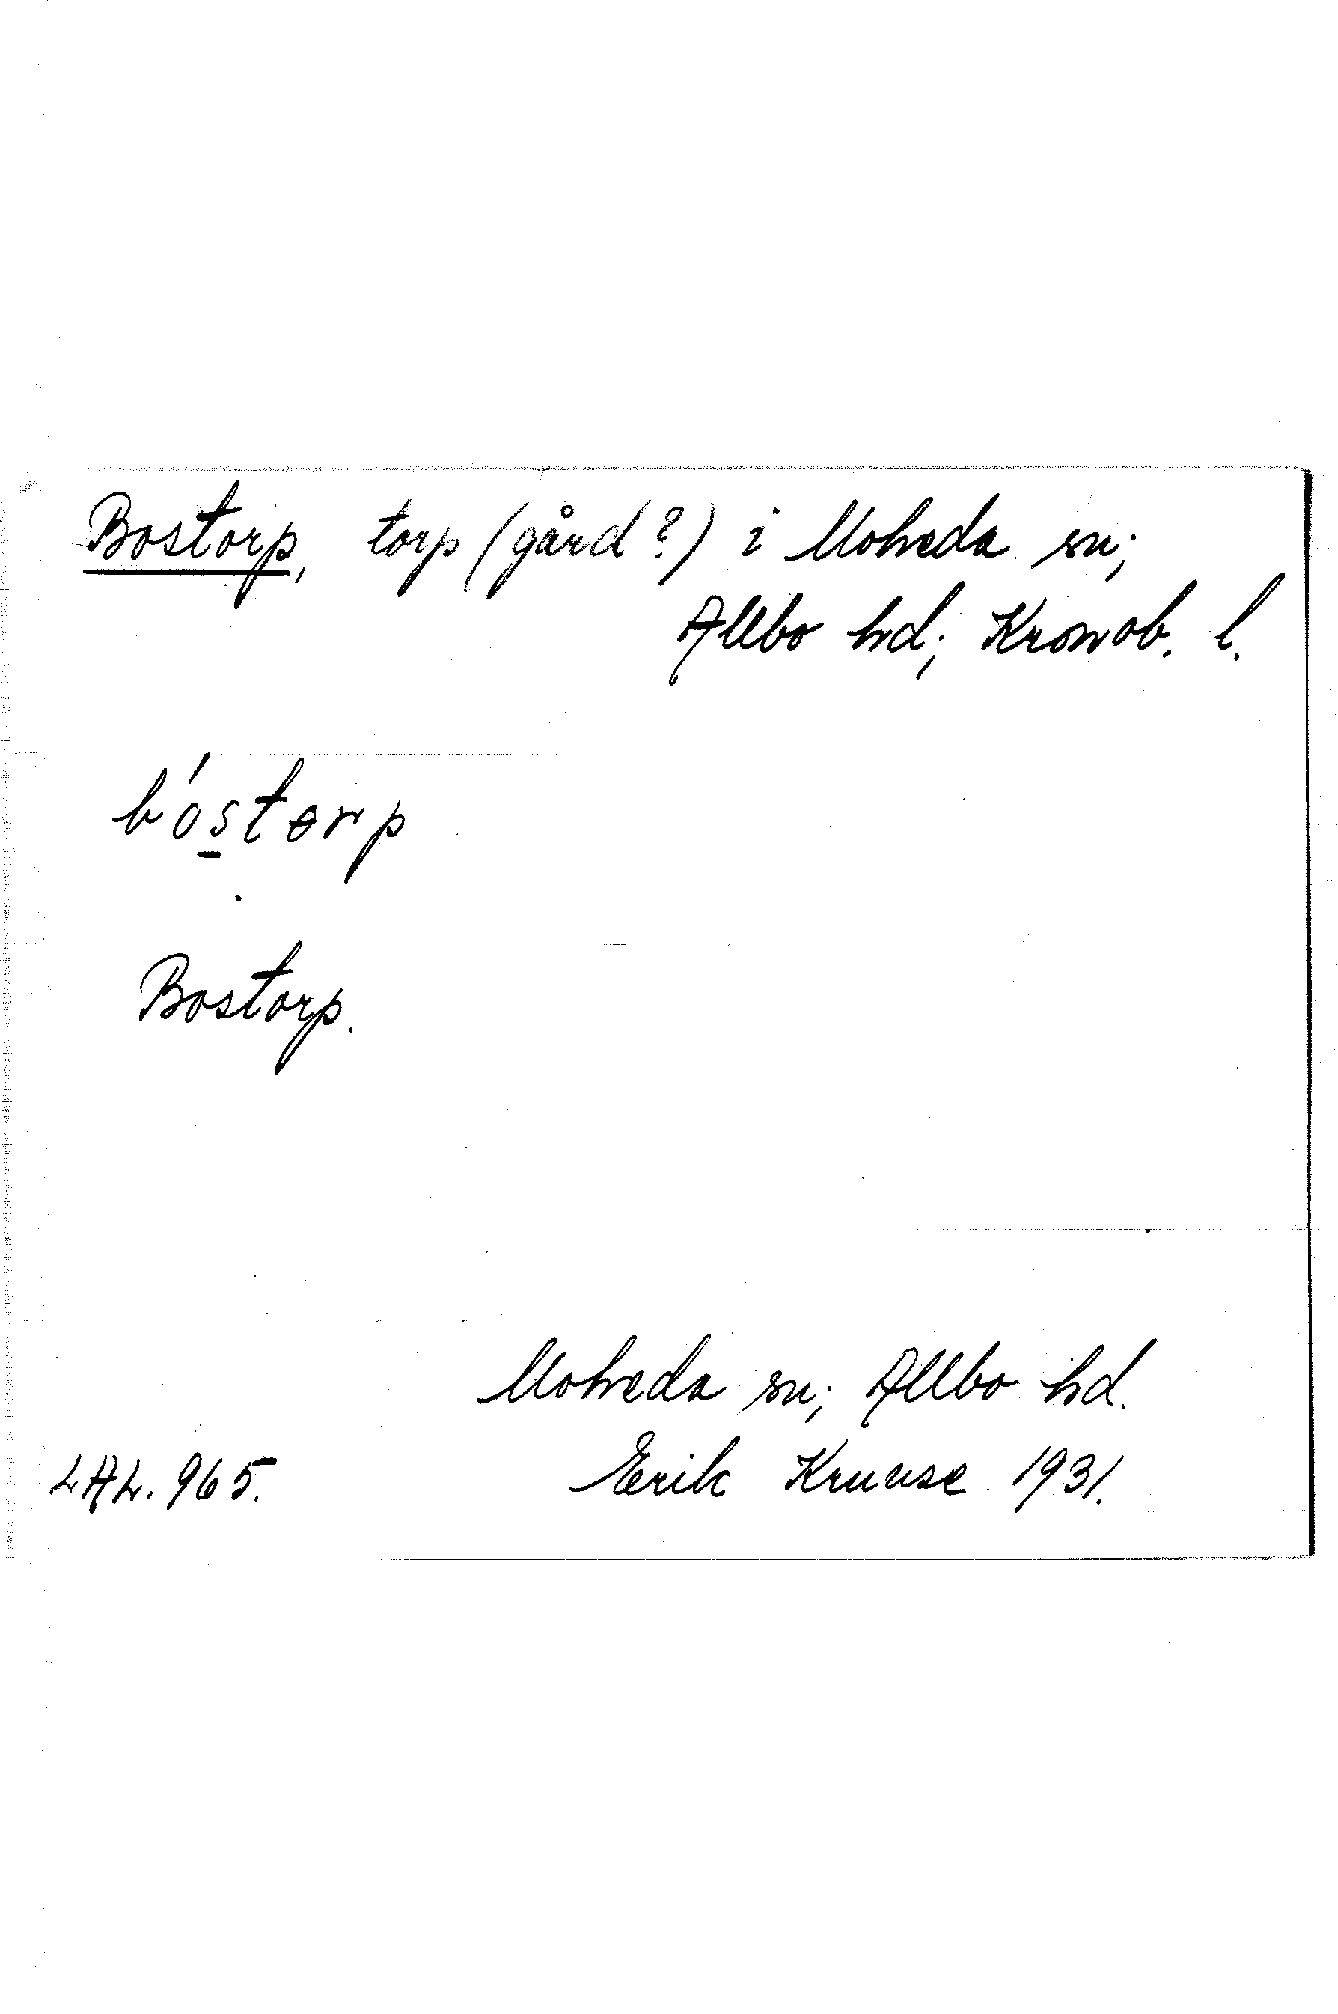 Bostorp, torp (gård?) i Moheda sn;
Allbo hd; Kronob. l.
bóstɵrp
Bostorp.
Moheda sn; Allbo hd.
LAL. 965. Erik Kruuse 1931.